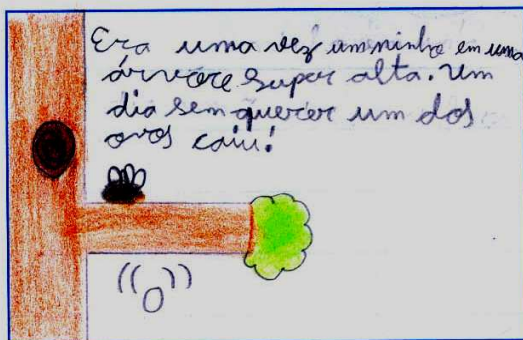 Era uma vez um ninho em uma
árvore super alta. Um
dia sem querer um dos
ovos caiu!